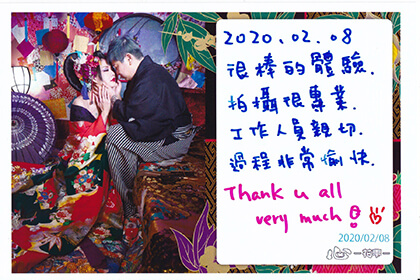 2020.02.08
很棒的體驗.
拍攝很專業.
工作人員親切.
過程非常愉快.
Thank u all
very much
2020/02/08